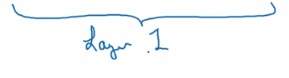 Layer 1